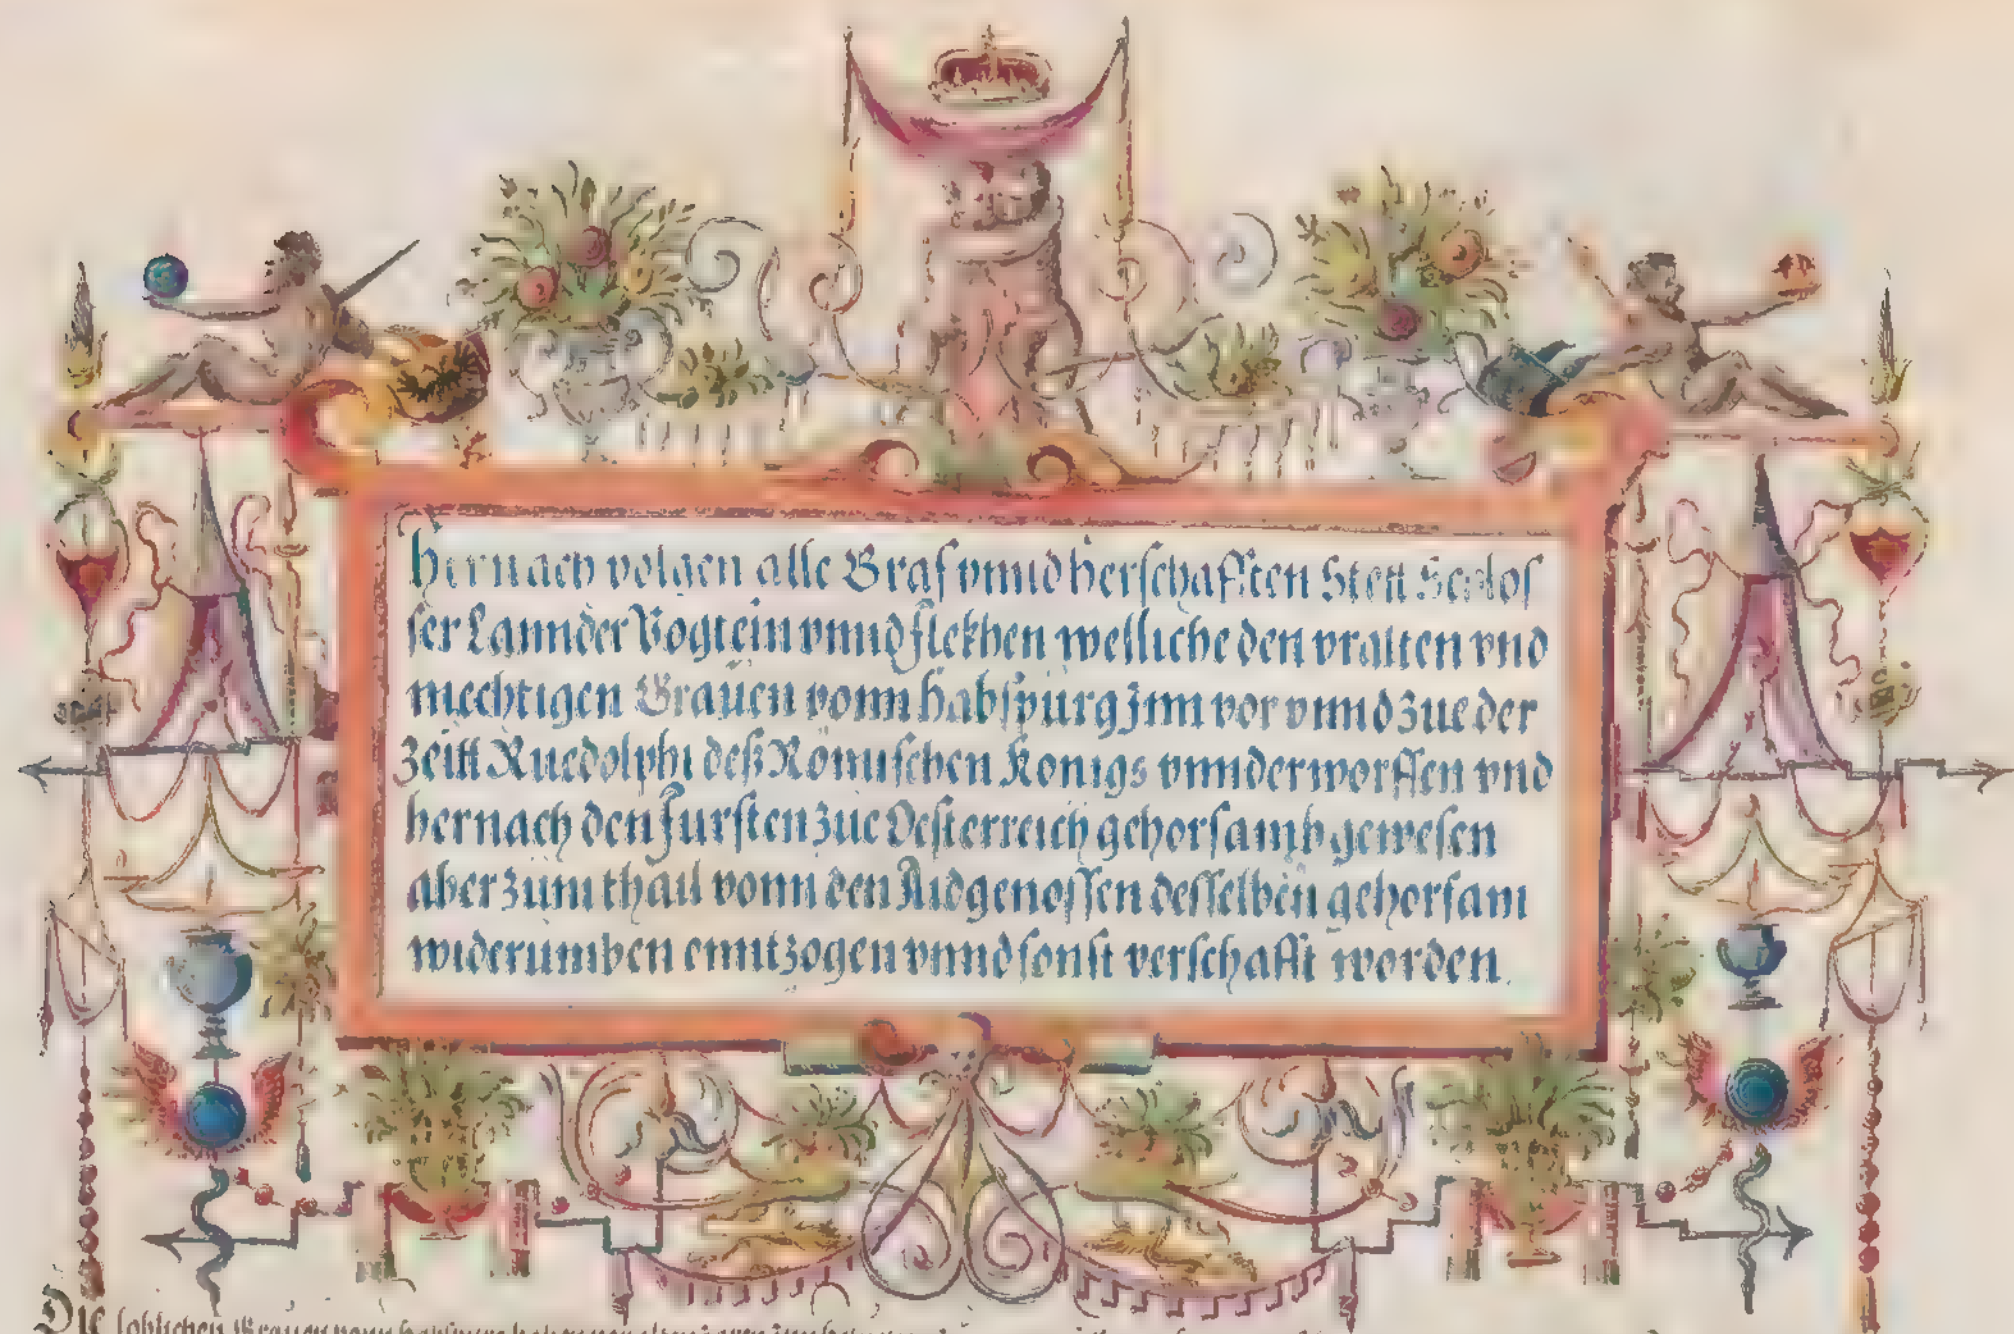 Hernach volgen alle Graf vnnd Herschafften Stett Schlos
ser Lannder Vogtein vnnd flekhen welliche den vralten vnd
mechtigen Grauen vonn Habspurg Jnn vor vnnd zue der
Zeitt Ruedolphi deß Römischen Konigs vnnderworffen vnd
hernach den Fursten zue Oesterreich gehorsamb gewesen
aber zum thail vonn den Aidgenossen desselben gehorsam
widerumben enntzogen vnnd sonst verschafft worden.
Die loblichen Grauen vonn Habspurg haben vor